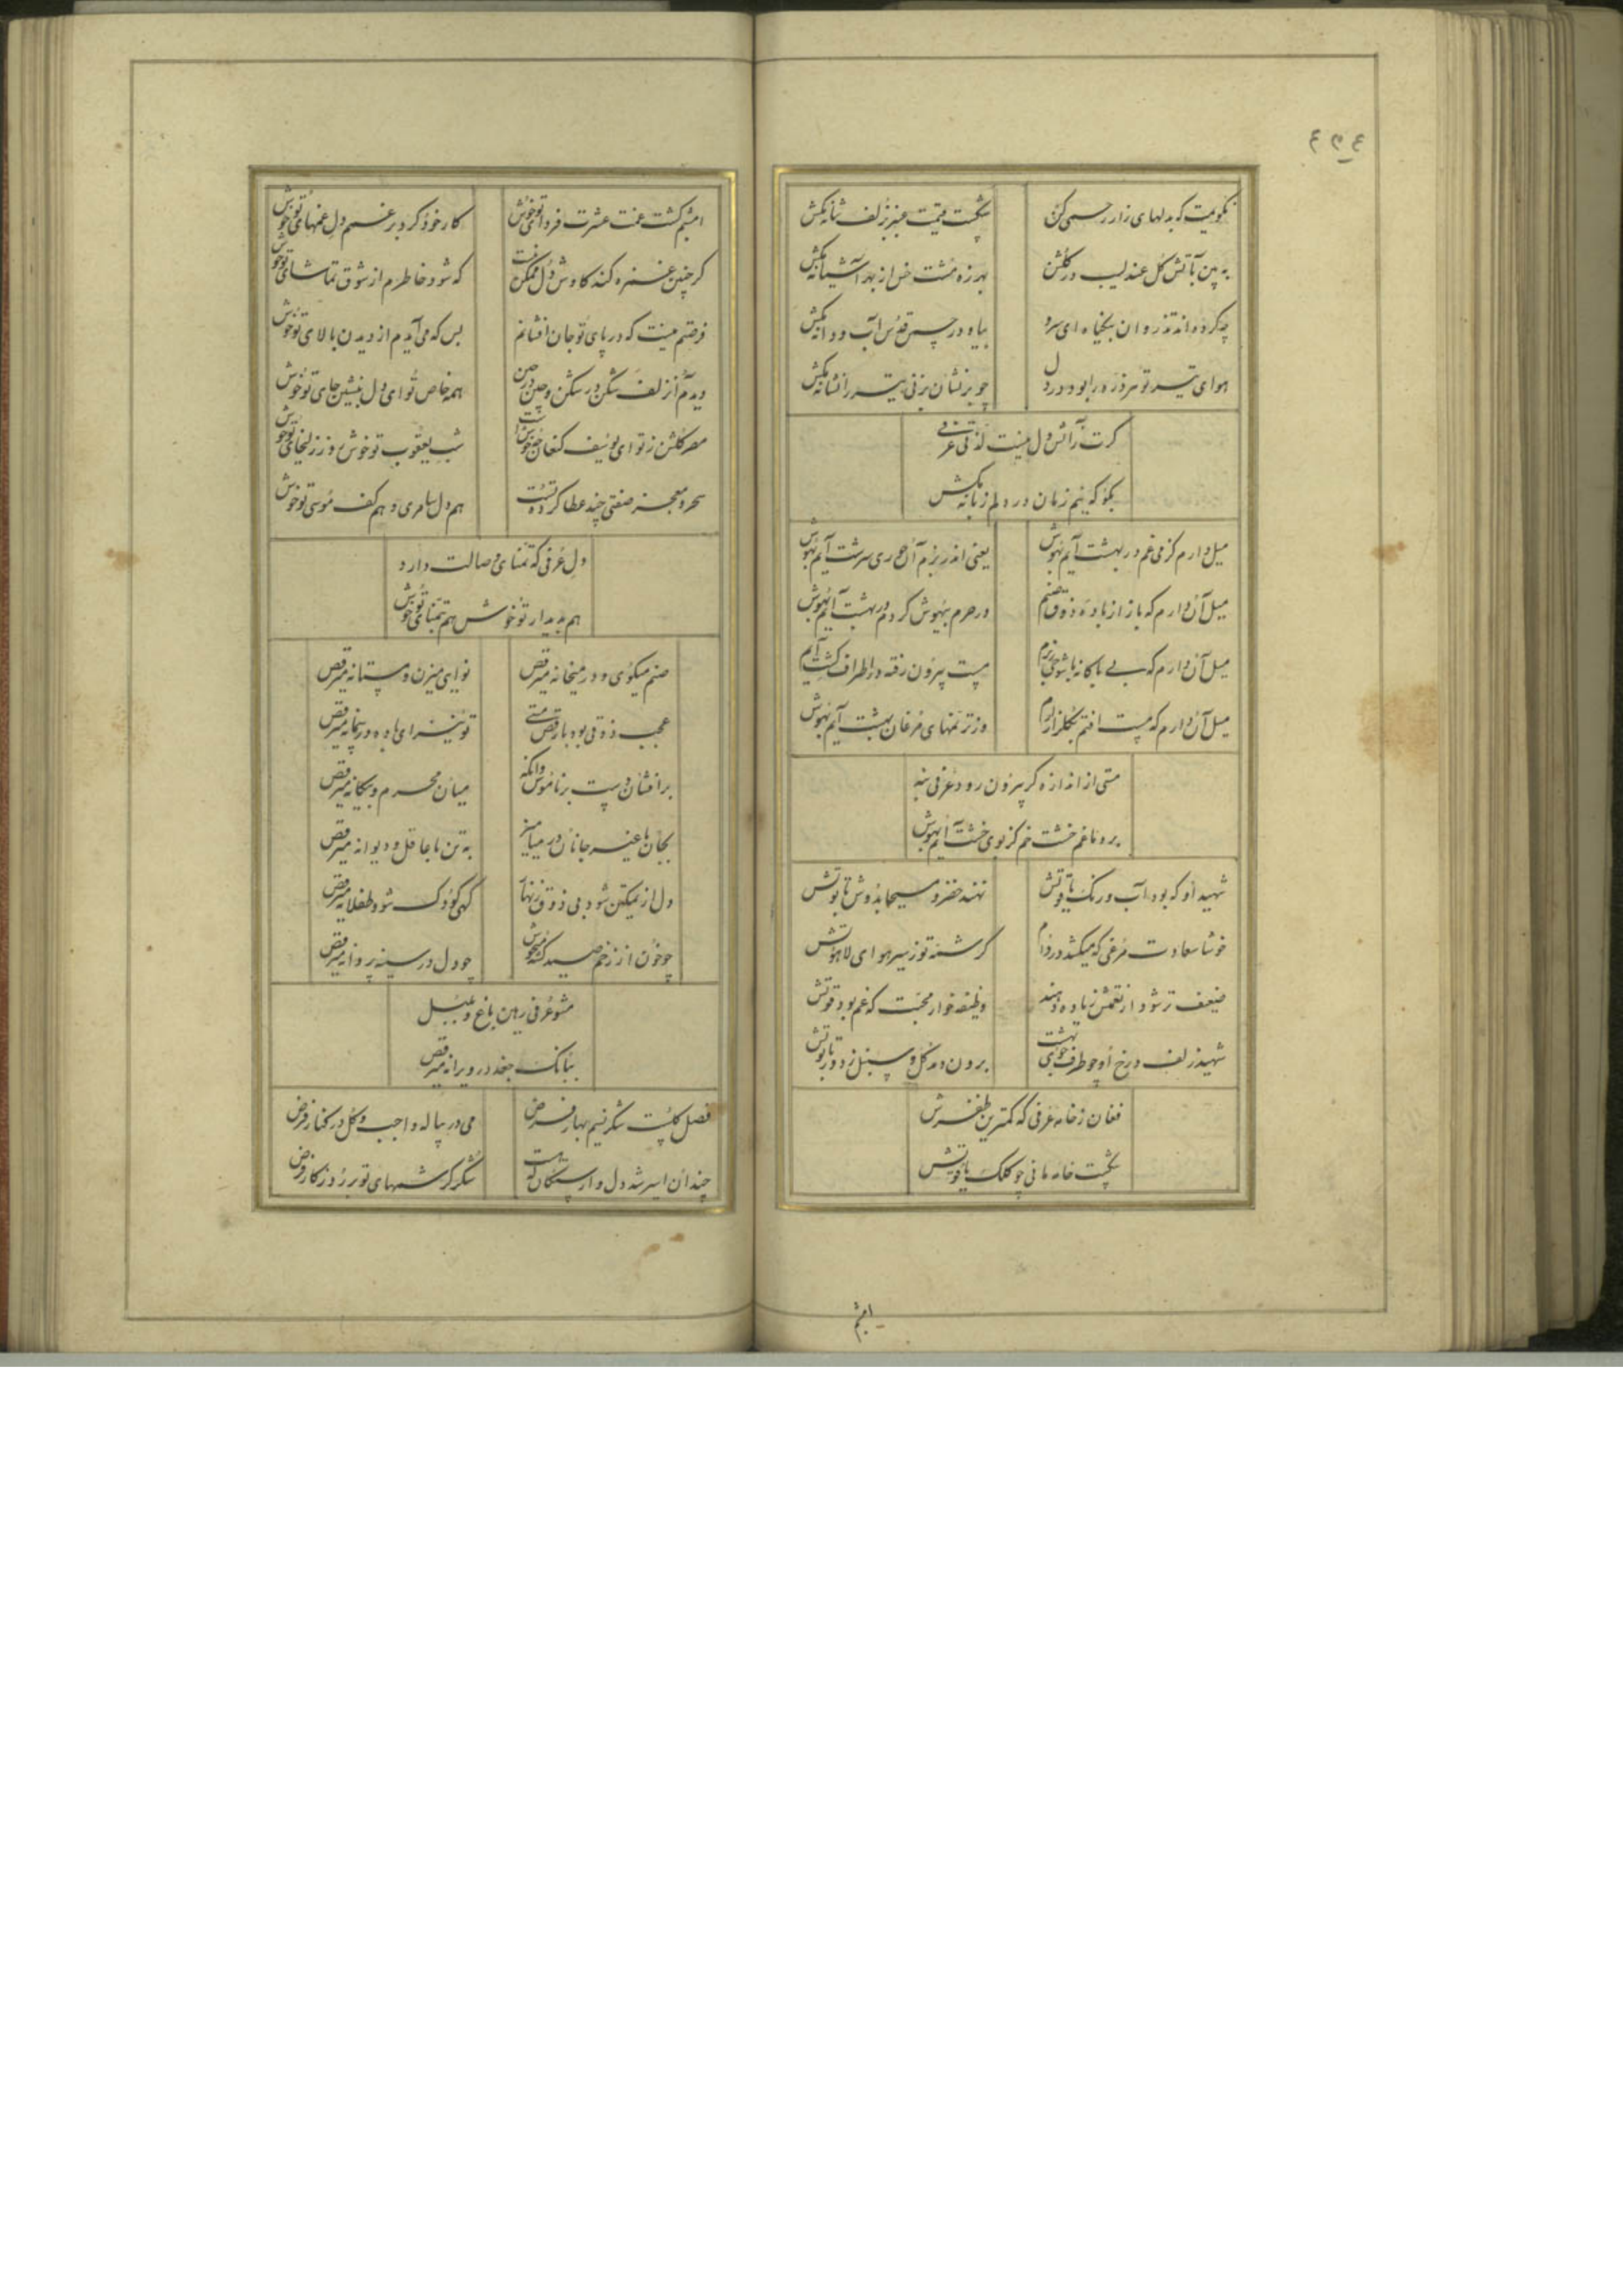 نگویمت که بدلهای زار رحمی کن
شکست قیمت عنبر ز زلف شانه مکش
به بین بآتش گل عندلیب در گلشن
بهرزه مشت خس از بهر آشیانه مکش
چه کرده‌اند تذروان بیگناه ای سرو
بیا و در چمن قدس آب و دانه مکش
هوای تیر تو هر ذره را بود در دل
چو بر نشان بزنی تیر را نشانه مکش
گرت بر آتش دل نیست لذتی عرفی
بگو که نیم زمان در دلم زبانه مکش
میل دارم کز می غم در بهشت آیم بهوش
یعنی اندر بزم آن حوری سرشت آیم بهوش
میل آن دارم که باز از باده ذوق صنم
در حرم بیهوش گردم در بهشت آیم بهوش
میل آن دارم که بی باکانه با شوخی بزم
مست بیرون رفته در اطراف کشت آیم
میل آن دارم که مست افتم بگلزار ارم
وز ترنمهای مرغان بهشت آیم بهوش
مستی از اندازه گر بیرون رود عرفی بنه
بر دماغم خشت خم کز بوی خشت آیم بهوش
شهید او که بود آب و رنگ یاقوتش
نهند خضر و مسیحا بدوش تابوتش
خوشا سعادت مرغی که میکشد در دام
کرشمه تو ز سیر هوای لاهوتش
ضعیف تر شود از نعمتش زیاده دهند
وظیفه خوار محبت که غم بود قوتش
شهید زلف و رخ او چو طرف جوی بهشت
برون دمد گل و سنبل ز دور تابوتش
فغان ز خامه عرفی که کمترین ظفرش
شکست خامه مانی چو کلک یاقوتش
امشبم
امشبم کشت غمت عشرت فردای تو خوش
کار خود کرد بر غم دل غمهای تو خوش
گر چنین غمزه کند کاوش دل ممکن نیست
که شود خاطرم از شوق تماشای تو خوش
فرصتم نیست که در پای تو جان افشانم
بس که می آیدم از دیدن بالای تو خوش
دیدم آن زلف شکن در شکن و چین در چین
همه خاص تو ای دل بنشین جای تو خوش
مصر گلشن ز تو ای یوسف کنعان
شب یعقوب تو خوش روز زلیخای تو خوش
سحر و معجز صفتی چند عطا کرده تست
هم دل سامری و هم کف موسی تو خوش
دل عرفی که تمنای وصالت دارد
هم بدیدار تو خوش هم بتمنای تو خوش
صنم میگوی و در میخانه میرقص
نوایی میزن و مستانه میرقص
عجب ذوقی بود با رقص مستی
تو نیز ای باده در پیمانه میرقص
بر افشان دست بر ناموس وانگه
میان محرم و بیگانه میرقص
بجان با غیر جانان در میامیز
به تن با عاقل و دیوانه میرقص
دل از تمکین شود بی ذوق زنهار
گهی کودک شو و طفلانه میرقص
چو خون از زخم صید کشته میجوش
چو دل در سینه پروانه میرقص
مشو عرفی رهین باغ و بلبل
ببانک جغد در ویرانه میرقص
فصل گلست شکر نسیم بهار فرض
می در پیاله واجب و گل در کنار فرض
چندان اسیر شد دل وارستگان که هست
شکر کرشمهای تو بر روزگار فرض